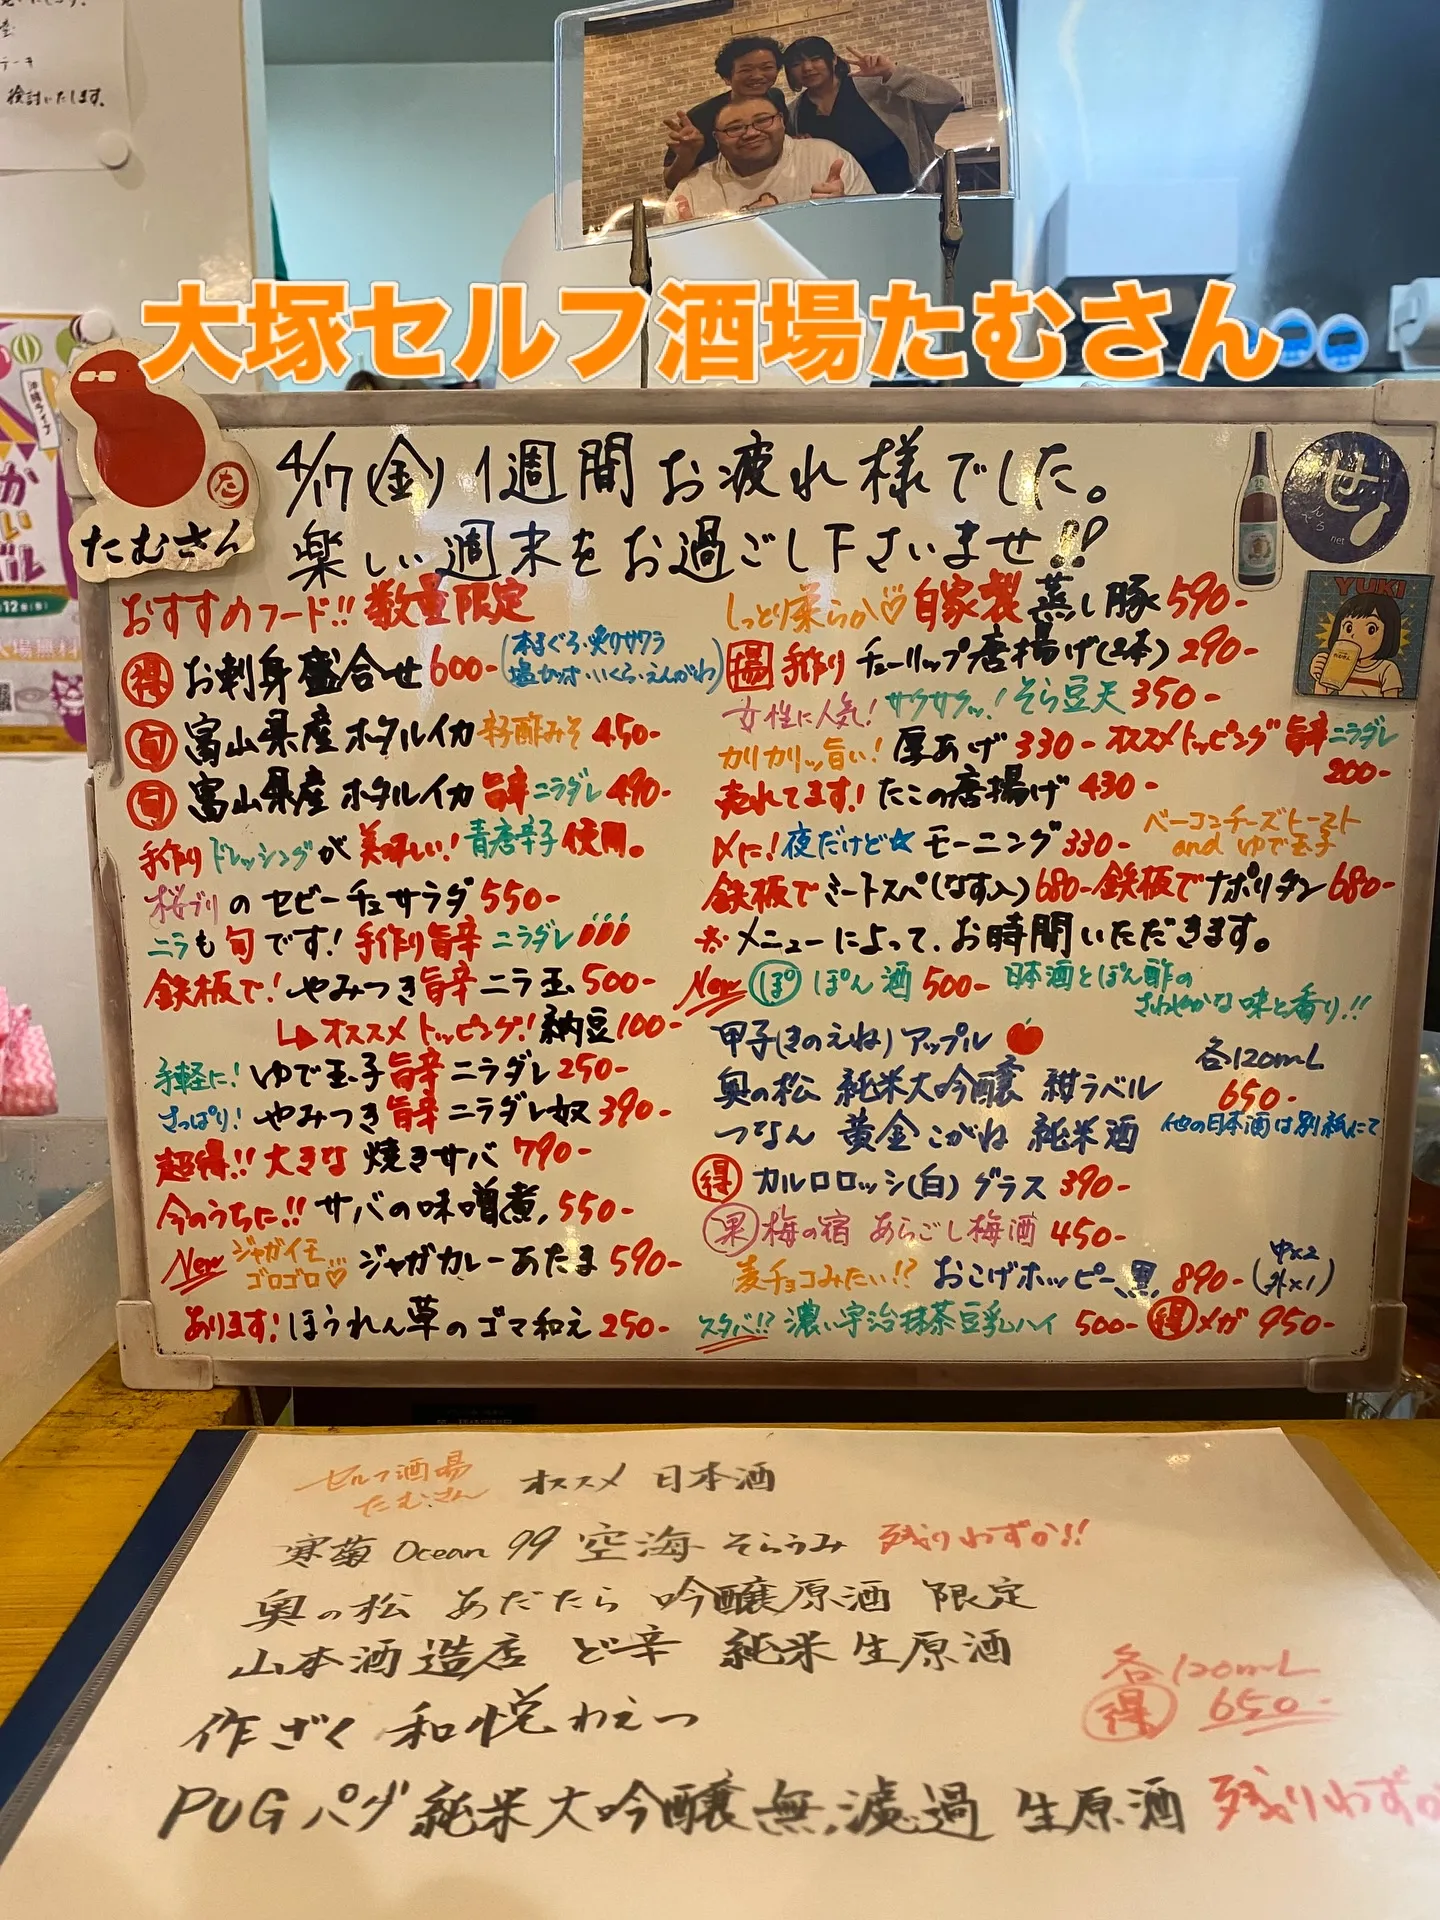 検討いたします。
大塚セルフ酒場たむさん
た
たむさん
4/17(金)1週間お疲れ様でした。
楽しい週末をお過ごし下さいませ!!
おすすめフード!! 数量限定
得 お刺身盛合せ 600-(本まぐろ・炙りサワラ
塩カツオ・いくら・えんがわ)
旬 富山県産ホタルイカ 辛子酢みそ 450-
旬 富山県産ホタルイカ 旨辛ニラダレ 490-
手作りドレッシングが美味しい!青唐辛子使用。
桜ブリのセビーチェサラダ 550-
ニラも旬です!手作り旨辛ニラダレ
鉄板で!やみつき旨辛ニラ玉 500-
オススメトッピング!納豆 100-
手軽に!ゆで玉子旨辛ニラダレ 250-
さっぱり!やみつき旨辛ニラダレ奴 390-
超得!!大きな焼きサバ 790-
今のうちに!!サバの味噌煮 550-
New ジャガイモ...
ゴロゴロ♡ ジャガカレーあたま 590-
あります!ほうれん草のゴマ和え 250-
しっとり柔らか♡自家製蒸し豚 590-
得 手作りチューリップ唐揚げ(2本) 290-
女性に人気!サクサクッ!そら豆天 350-
カリカリッ旨い!厚あげ 330- オススメトッピング旨辛ニラダレ
200-
売れてます!たこの唐揚げ 430-
〆に!夜だけど☆モーニング 330- ベーコンチーズトースト
and ゆで玉子
鉄板でミートスパ(なす入) 680- 鉄板でナポリタン 680-
※メニューによって、お時間いただきます。
New ぽ ぽん酒 500- 日本酒とぽん酢の
さわやかな味と香り!!
甲子(きのえね)アップル
奥の松 純米大吟醸 紺ラベル
つなん 黄金こがね 純米酒
各120mL
650-
他の日本酒は別紙にて
得 カルロロッシ(白)グラス 390-
果 梅の宿 あらごし梅酒 450-
麦チョコみたい!?おこげホッピー黒 890-(中×2
外×1)
スタバ!?濃い宇治抹茶豆乳ハイ 500- 得 メガ 950-
せ
んべろ
net
YUKI
セルフ酒場
たむさん オススメ 日本酒
寒菊 Ocean 99 空海 そらうみ 残りわずか!!
奥の松 あだたら 吟醸原酒 限定
山本酒造店 ど辛 純米生原酒
作ざく 和悦わえつ
PUG パグ 純米大吟醸無濾過 生原酒 残りわずか
各120mL
得 650-